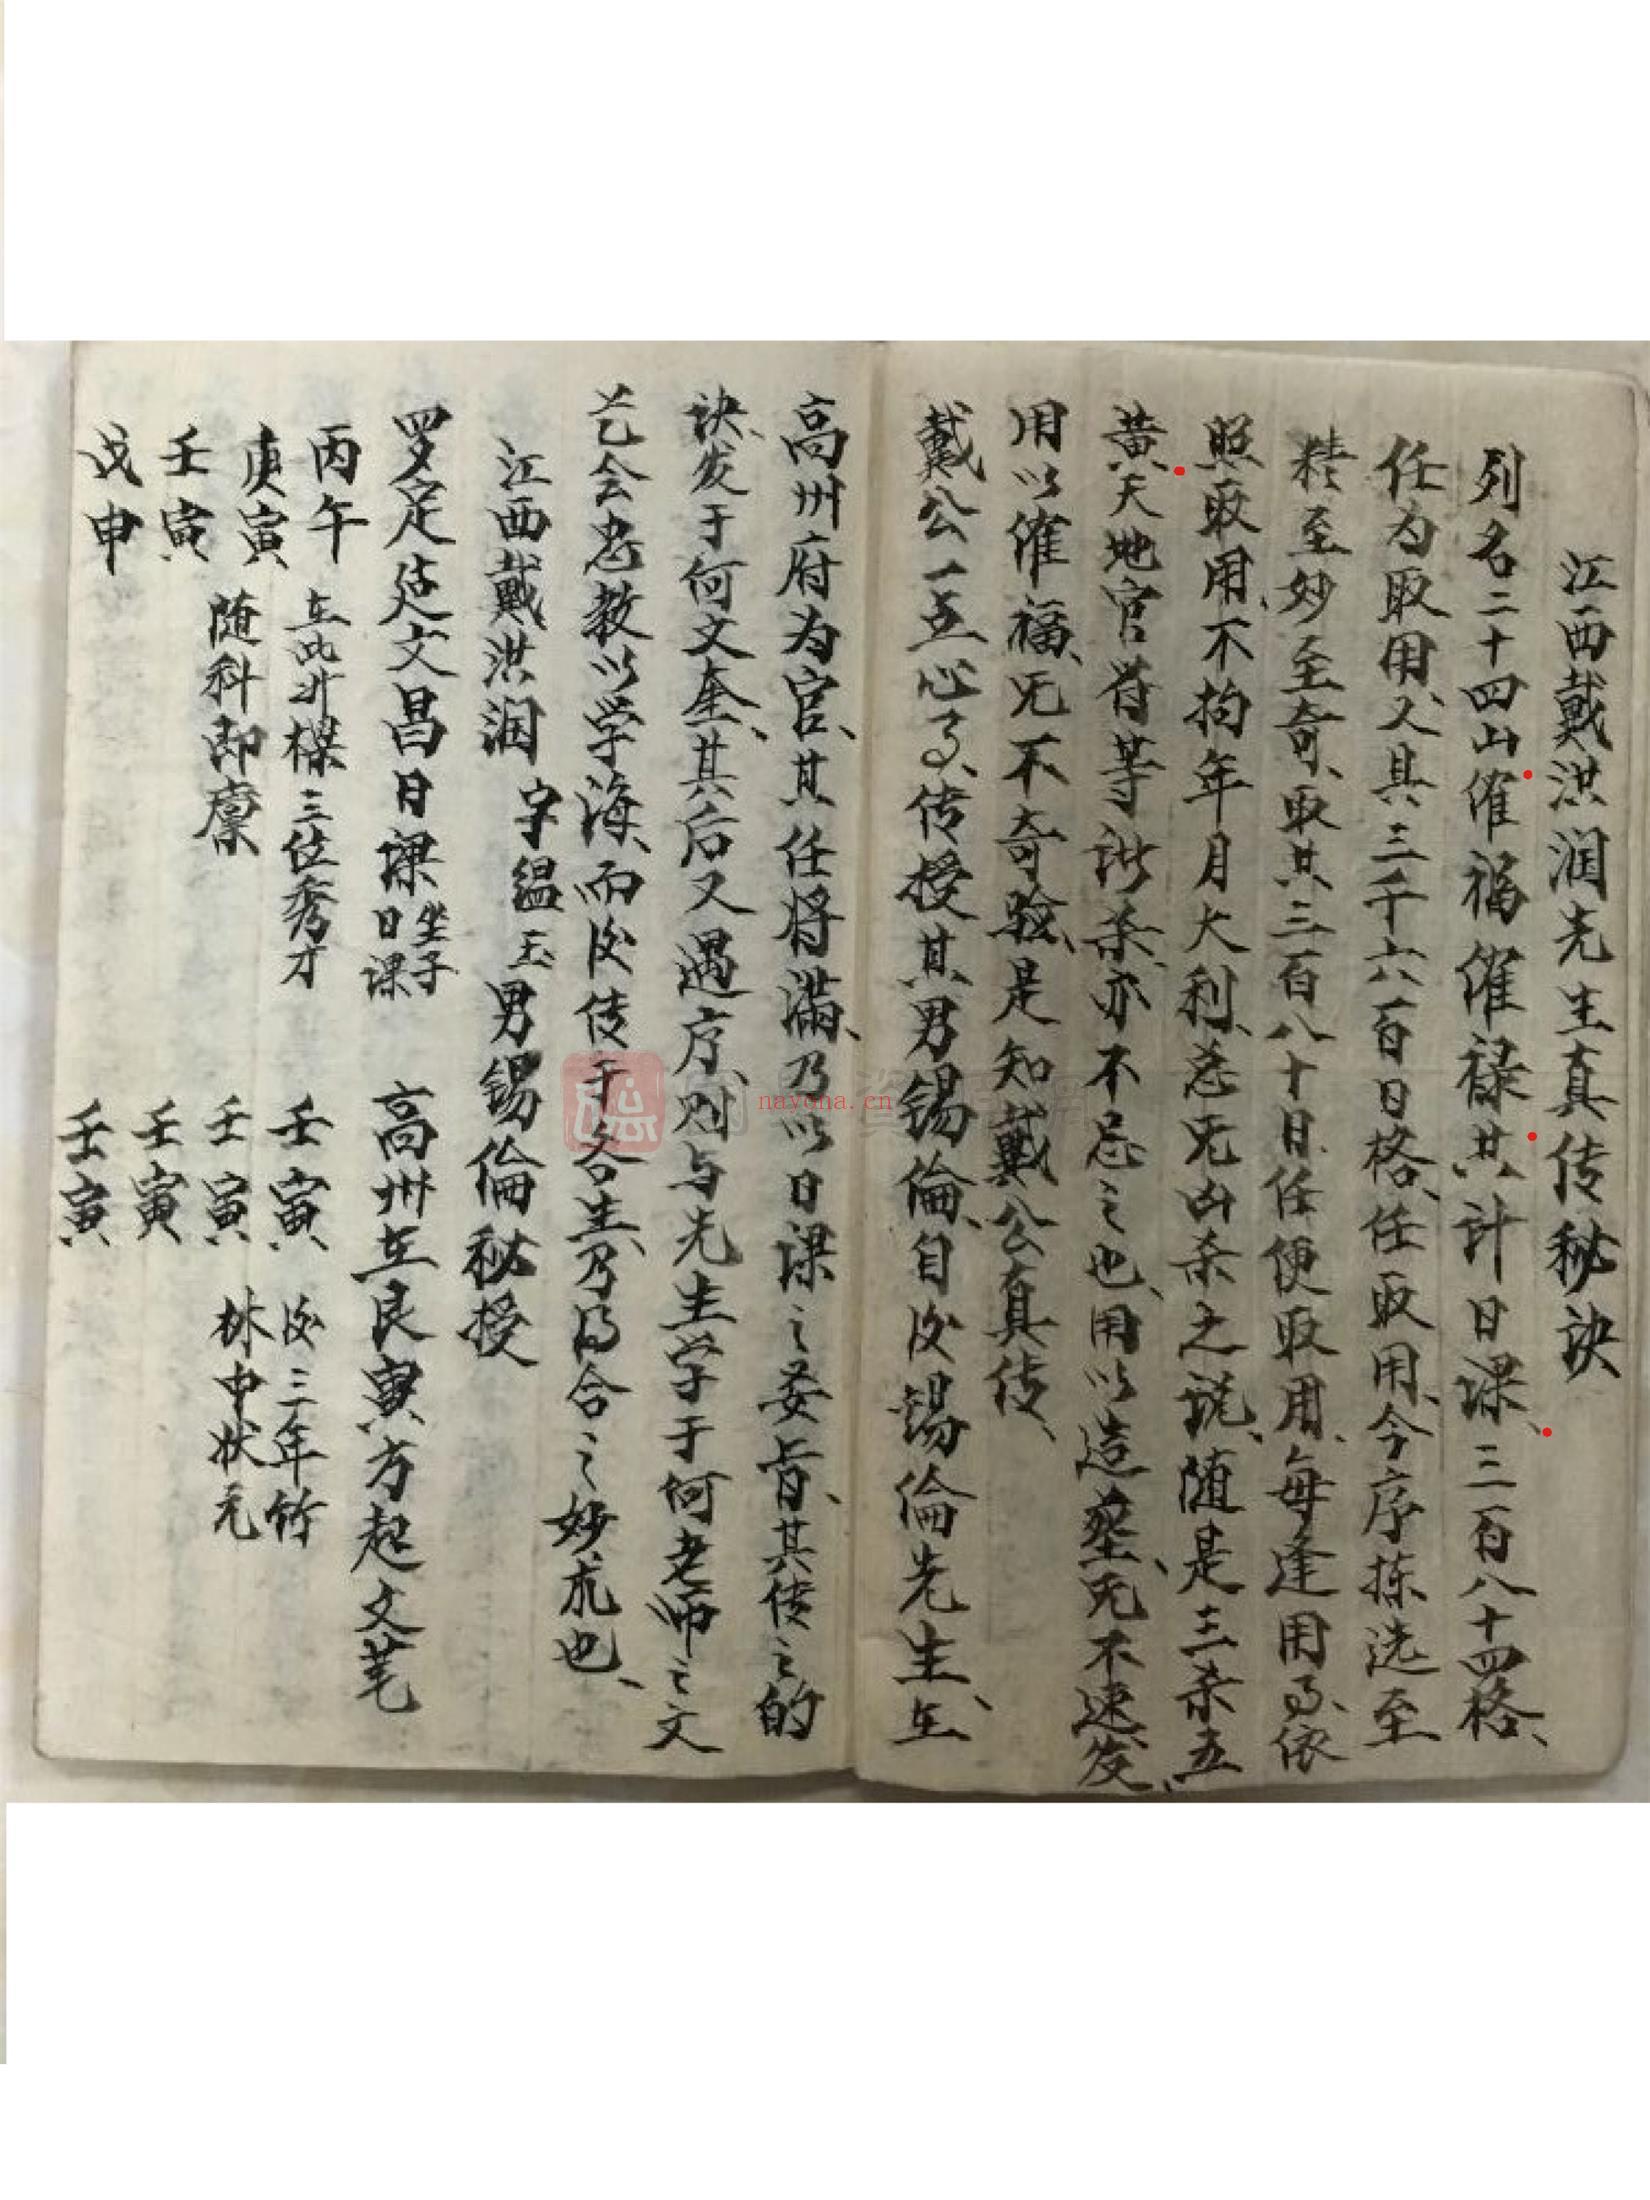 江西戴洪润先生真传秘诀
列名二十四山催福催禄共计日课、三百八十四格、
任为取用、又具三千六百日格、任取用、今序拣选至
精至妙至奇、取其三百八十日、任便取用、每逢用了、依
照取用、不拘年月大利、忌无凶杀之说、随是三杀五
黄天地官符等诸杀、亦不忌之也、用以造葬、无不速发、
用以催福、无不奇验、是知戴公真传、
戴公一点心了、传授其男锡倫、自后锡倫先生、在
高州府为官、其任将满、乃以日课之妾肯、其传之的
诀、发于何文奎、其后又遇序、则与先生学于何老师之文
艺、会忠教以学海、而后传于各生、乃得合之妙术也、
江西戴洪润 字韫玉 男锡倫秘授
罗定廷文昌日课 坐子日课
高州在艮寅方起文笔
丙午 庚寅 壬寅 戊申
在此升樑三位秀才
随科即廪
壬寅 壬寅 壬寅 壬寅
后三年竹
林中状元
nayona.cn